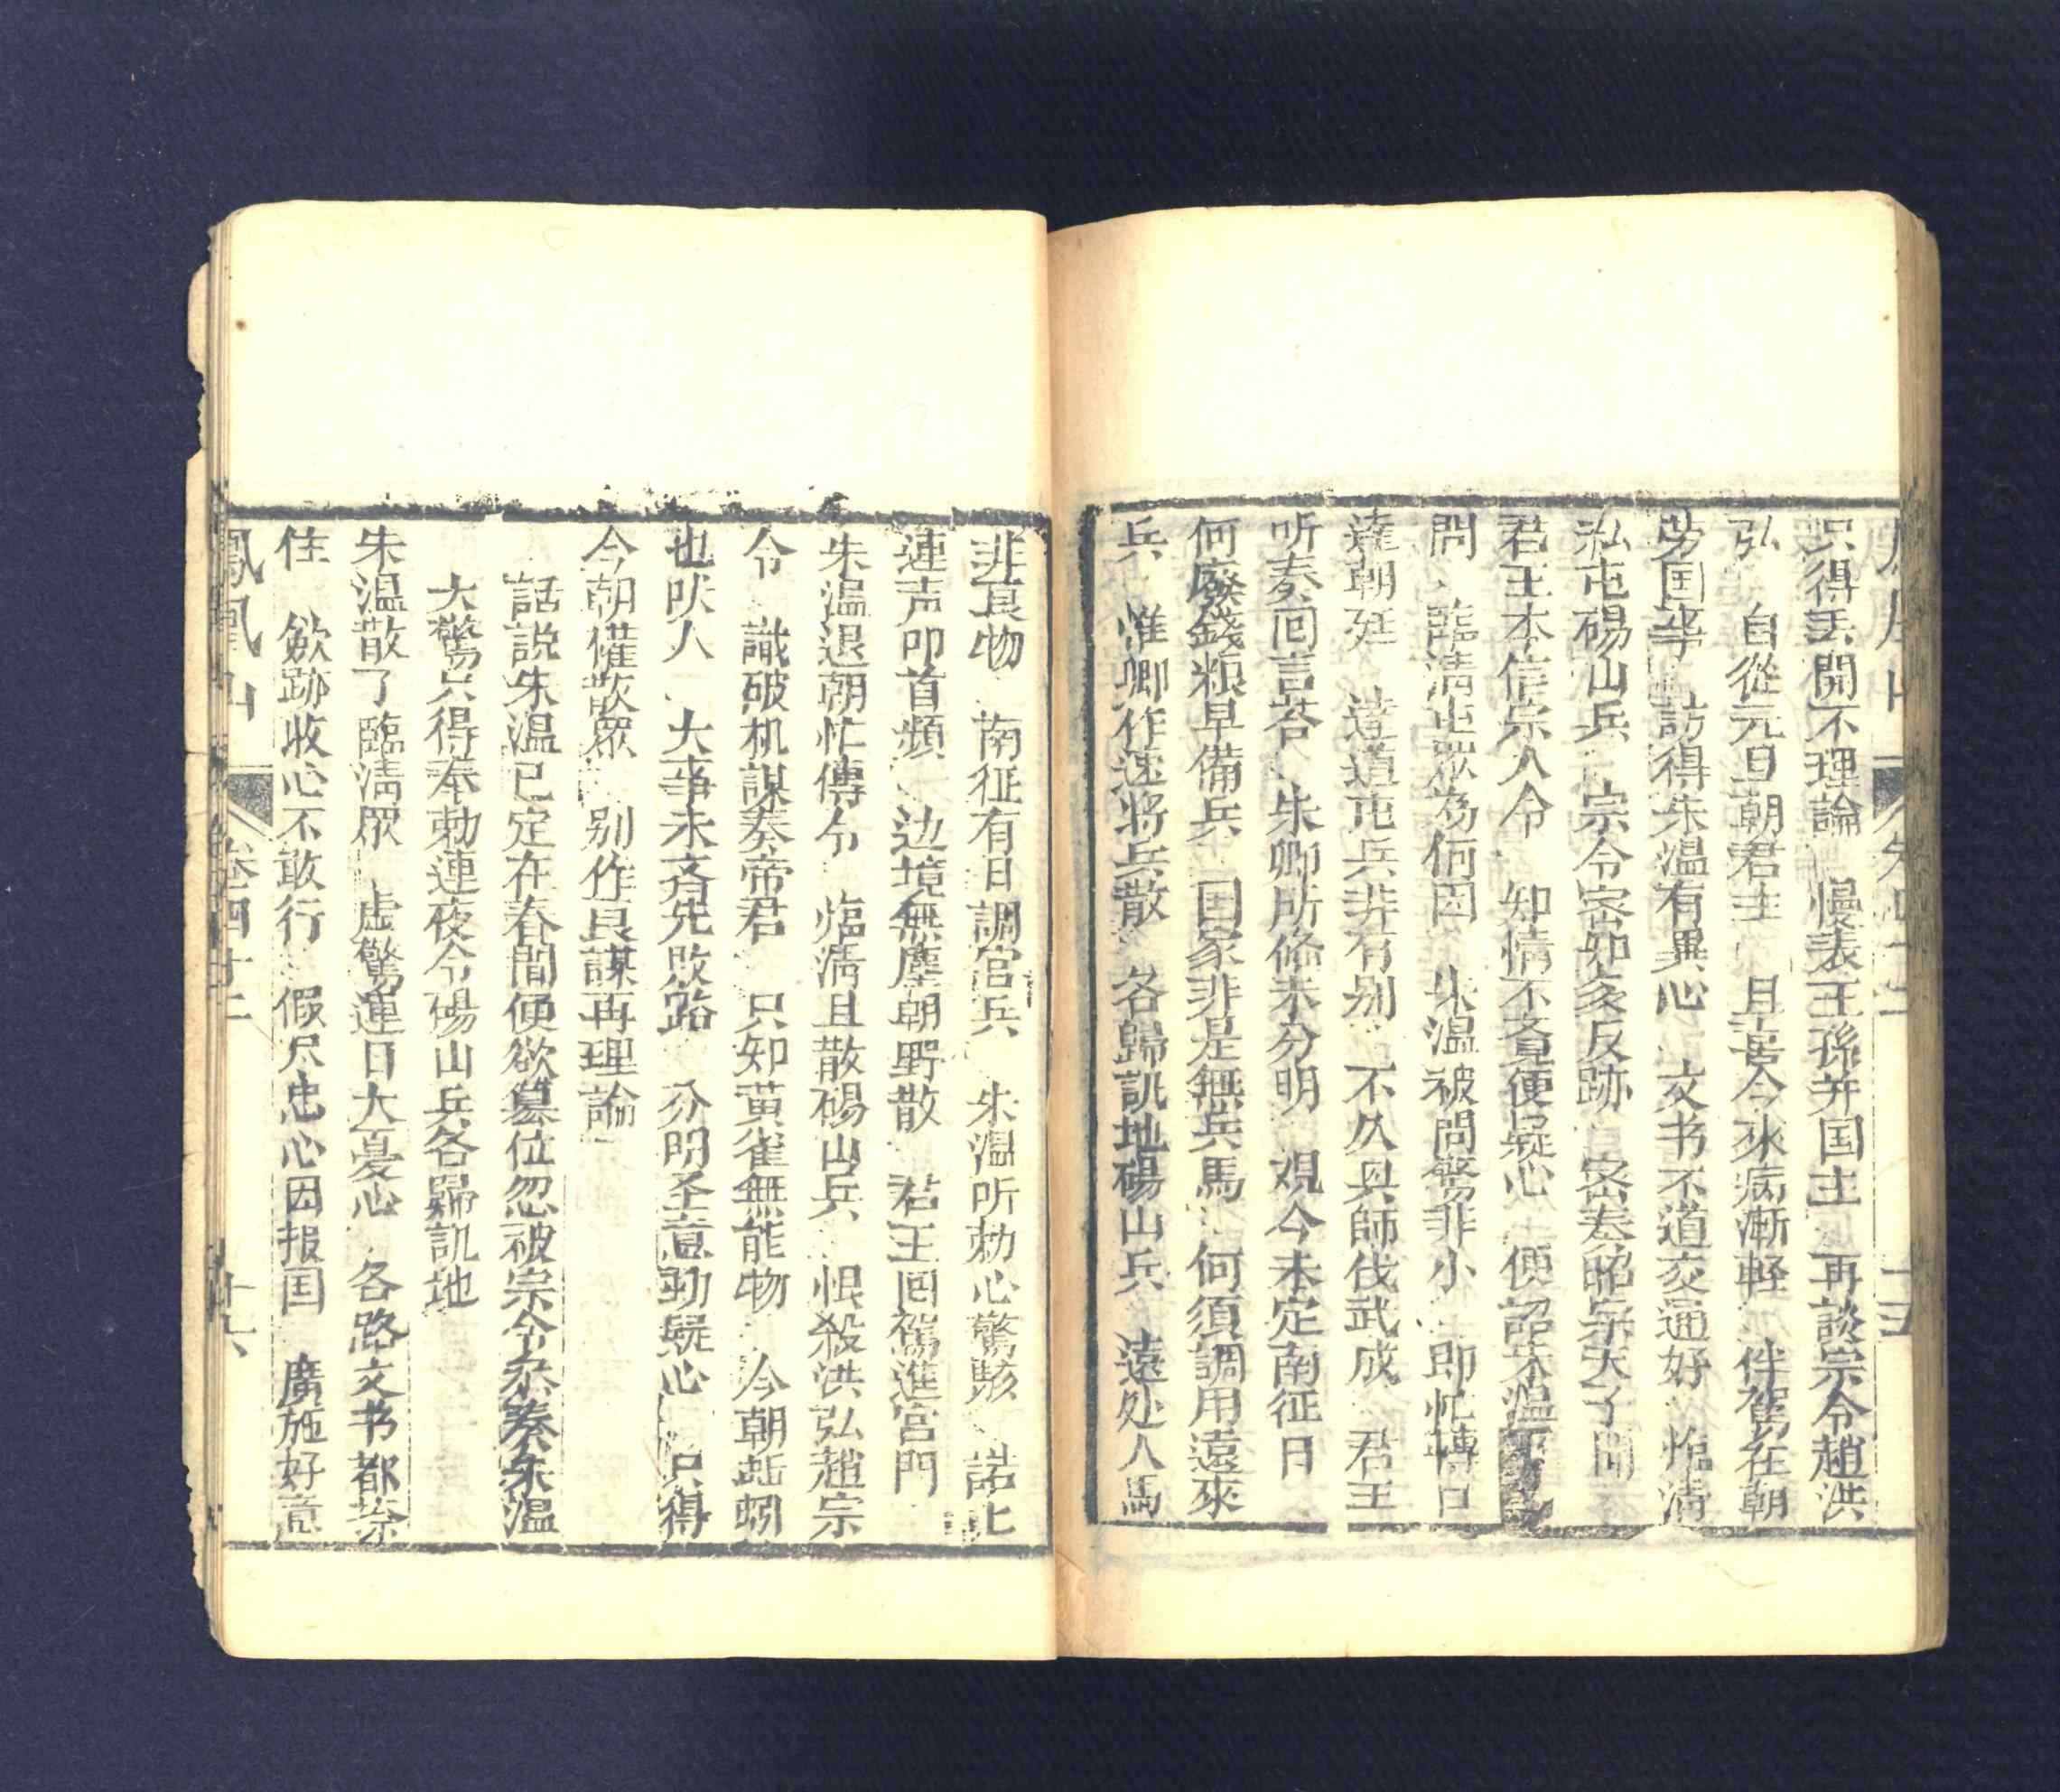 只得丢開不理論 慢表王孫并国主 再談宗令趙洪
弘 自從元旦朝君主 且喜今來病漸軽 伴駕在朝
劳国平 訪得朱温有異心 文书不道交通好 臨清
私屯碭山兵 宗令密知多反跡 密奏昭宗天子聞
君王本信宗人令 知情不覚便疑心 便詔朱温
問 臨清屯眾為何因 朱温被問驚非小 即忙轉口
達朝廷 遠道屯兵非有别 不久興師伐武成 君王
听奏回言荅 朱卿所條未分明 観今未定南征日
何廢錢粮早備兵 国家非是無兵馬 何須調用遠來
兵 惟卿作速將兵散 各歸訊地碭山兵 遠处人馬
非良物 南征有日調官兵 朱温听勅心驚駭 諾
連声叩首頻 边境無塵朝野散 君王回駕進宮門
朱温退朝忙傳令 臨清且散碭山兵 恨殺洪弘趙宗
令 識破机謀奏帝君 只知黃雀無能物 今朝蚯蚓
也吠人 大事未斉先敗路 分明圣意動疑心 只得
今朝催散眾 别作良謀再理論
話説朱温已定在春間便欲篡位忽被宗令叅奏朱温
大驚只得奉勅連夜令碭山兵各歸訊地
朱温散了臨清眾 虚驚連日大憂心 各路文书都荅
住 歛跡收心不敢行 假尽忠心因报国 廣施好意
鳳凰山 卷四十二 十六